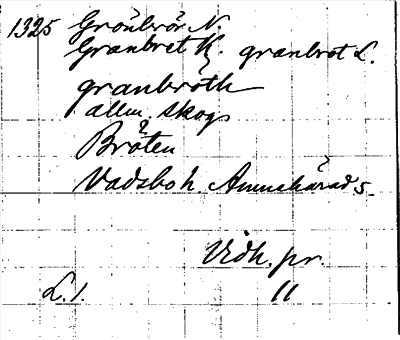 1325 Grönbrör N.
Granbret K. granbrot L.
granbröth
allm. skog
?
Bröten
Vadsbo h. Amnehärad s.
Vidh. pr.
L. 1. 11